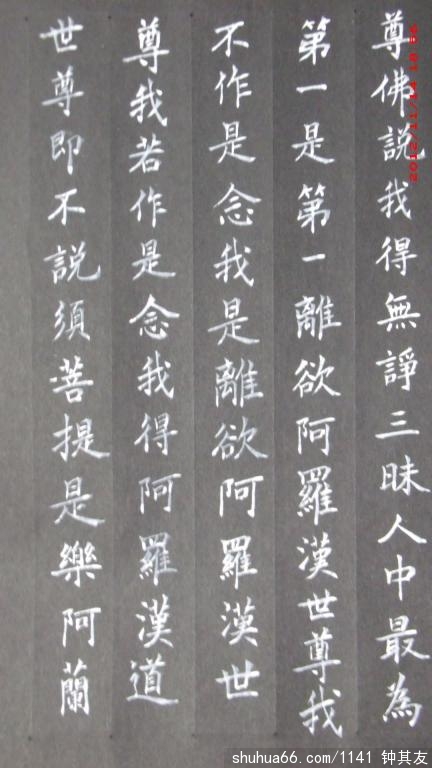 尊佛説我得無諍三昧人中最為
第一是第一離欲阿羅漢世尊我
不作是念我是離欲阿羅漢世
尊我若作是念我得阿羅漢道
世尊即不説須菩提是樂阿蘭
shuhua66.com/1141 钟其友